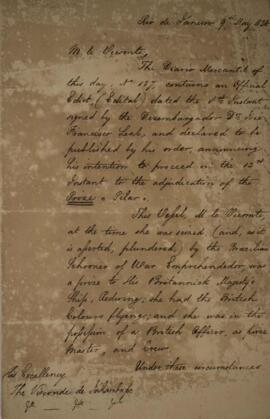 Rio de Janeiro 9th May 182
M. le Vicomte,
The Diario Mercantil of
this day, No 187. contains an Official
Edict (Edital) dated the 8th Instant
signed by the Desembargador Dr. José
Francisco Leal, and declared to be
published by his order, announcing
his intention to proceed on the 12th
Instant to the adjudication of the
Prize "Pilar".
This Vessel, M. le Vicomte,
at the time she was seized (and, as it
is asserted, plundered) by the Brazilian
Schooner of War Emprehendedor was
a prize to His Britannick Majesty's
Ship, Redwing; she had the British
Colours flying; and she was in the
possession of a British Officer, as
Master, and Crew.
Under these circumstances
His Excellency
The Viconde de
&c &c &c